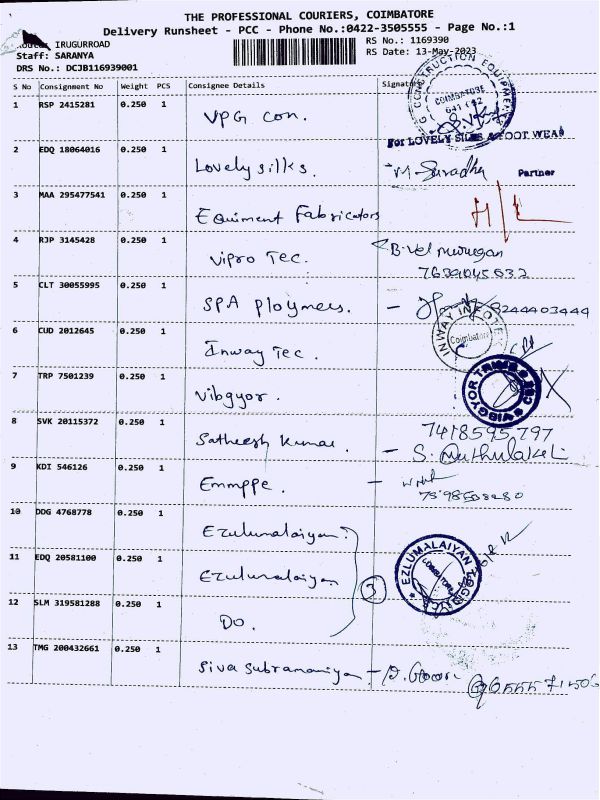 THE PROFESSIONAL COURIERS, COIMBATORE
Delivery Runsheet - PCC - Phone No.:0422-3505555 - Page No.:1
IRUGURROAD
RS No.: 1169390
Staff: SARANYA
RS Date: 13-May-2023
DRS No.: DCJB116939001
S No Consignment No Weight PCS Consignee Details Signature
1 RSP 2415281 0.250 1 VPG con.
CONSTRUCTION EQUIPMENT
COIMBATORE
For LOVELY SILKS & FOOT WEAR
2 EDQ 18064016 0.250 1 Lovely silks.
Partner
3 MAA 295477541 0.250 1 Equiment Fabricators
4 RJP 3145428 0.250 1 Vipro Tec. B. Vel murugan
7639045632
5 CLT 30055995 0.250 1 SPA Ploymers. - 8244403444
6 CUD 2012645 0.250 1 Inway Tec.
INWAY INFOTEC
Coimbatore
7 TRP 7501239 0.250 1 Vibgyor.
VIBGYOR
8 SVK 20115372 0.250 1 Satheesh Kumar. - 7418595797
S. Muthulakshmi
9 KDI 546126 0.250 1 Emmppe. -
10 DDG 4768778 0.250 1 Ezulumalaiyan.
11 EDQ 20581100 0.250 1 Ezulumalaiyan
3
EZLUMALAIYAN
12 SLM 319581288 0.250 1 Do.
13 TMG 200432661 0.250 1 Siva Subramaniya -